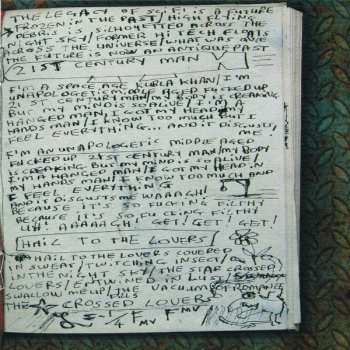 THE LEGACY OF SCIFI IS A FUTURE
FROZEN IN THE PAST/HIGH FLYING
DEBRIS IS SILHOUETTED ACROSS THE
NIGHT SKY/FORMER HI TECH FLOATS
ACROSS THE UNIVERSE/WHAT WAS ONCE
THE FUTURE IS NOW AN ANTIQUE PAST
21ST CENTURY MAN/
I'M A SPACE AGE KUBLA KHAN/I'M
UNAPOLOGETIC MIDDLE AGED FUCKED UP
21ST CENTURY MAN/MY BODY IS CREAKING
BUT MY MIND IS SO ALIVE/I'M A
HANGED MAN/I GOT MY HEAD IN MY
HANDS MAN/I KNOW TOO MUCH BUT I
FEEL EVERYTHING... AND IT DISGUSTS
ME.
I'M AN UNAPOLOGETIC MIDDLE AGED
FUCKED UP 21ST CENTURY MAN/MY BODY
IS CREAKING BUT MY MIND IS SO ALIVE/
I'M A HANGED MAN/I GOT MY HEAD IN
MY HANDS MAN/I KNOW TOO MUCH AND
I FEEL EVERYTHING
AND IT DISGUSTS ME WAAAGH!
BECAUSE IT'S SO FUCKING FILTHY
BECAUSE IT'S SO FUCKING FILTHY
UH! AAAAAGH! GET/GET/GET!
HAIL TO THE LOVERS/
HAIL TO THE LOVERS COVERED
IN SWEAT/TWITCHING INSECT/
IN THE NIGHT SKY/THE STAR CROSSED
LOVERS/ENTWINED IN LUST/
SWALLOW ME UP/THE VACUUM OF ROMANCE
THE CROSSED LOVERS